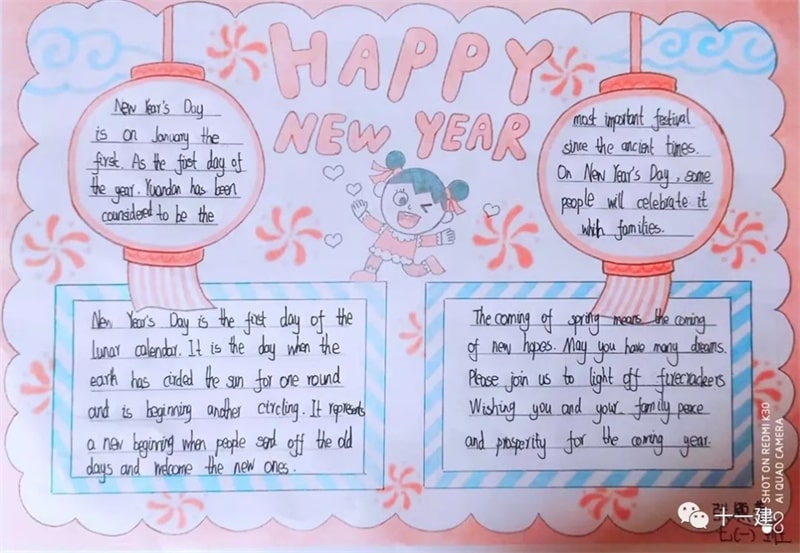 HAPPY
NEW YEAR
New Year's Day
is on January the
first. As the first day of
the year. Yuandan has been
counsidered to be the
most important festival
sinre the ancient times.
On New Year's Day, some
people will celebrate it
with families.
New Year's Day is the first day of the
lunar calendar. It is the day when the
earth has circled the sun for one round
and is beginning another circling. It represents
a new beginning when people send off the old
days and welcome the new ones.
The coming of spring means the coming
of new hopes. May you have many dreams.
Please join us to light off firecrackers
Wishing you and your family peace
and prosperity for the coming year.
七(一)班
十一建
SHOT ON REDMI K30
AI QUAD CAMERA